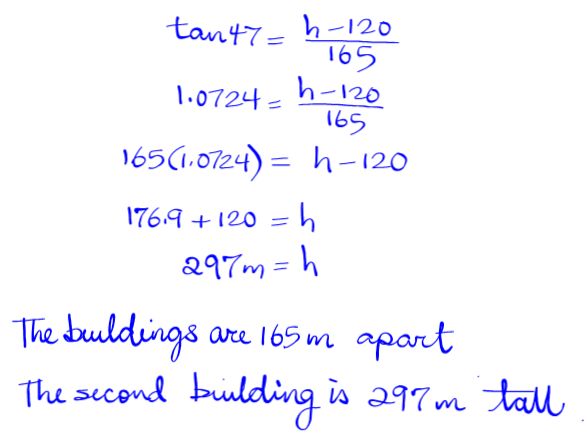 tan47 = h-120/165
1.0724 = h-120/165
165(1.0724) = h-120
176.9 + 120 = h
297m = h
The buildings are 165m apart
The second building is 297m tall.